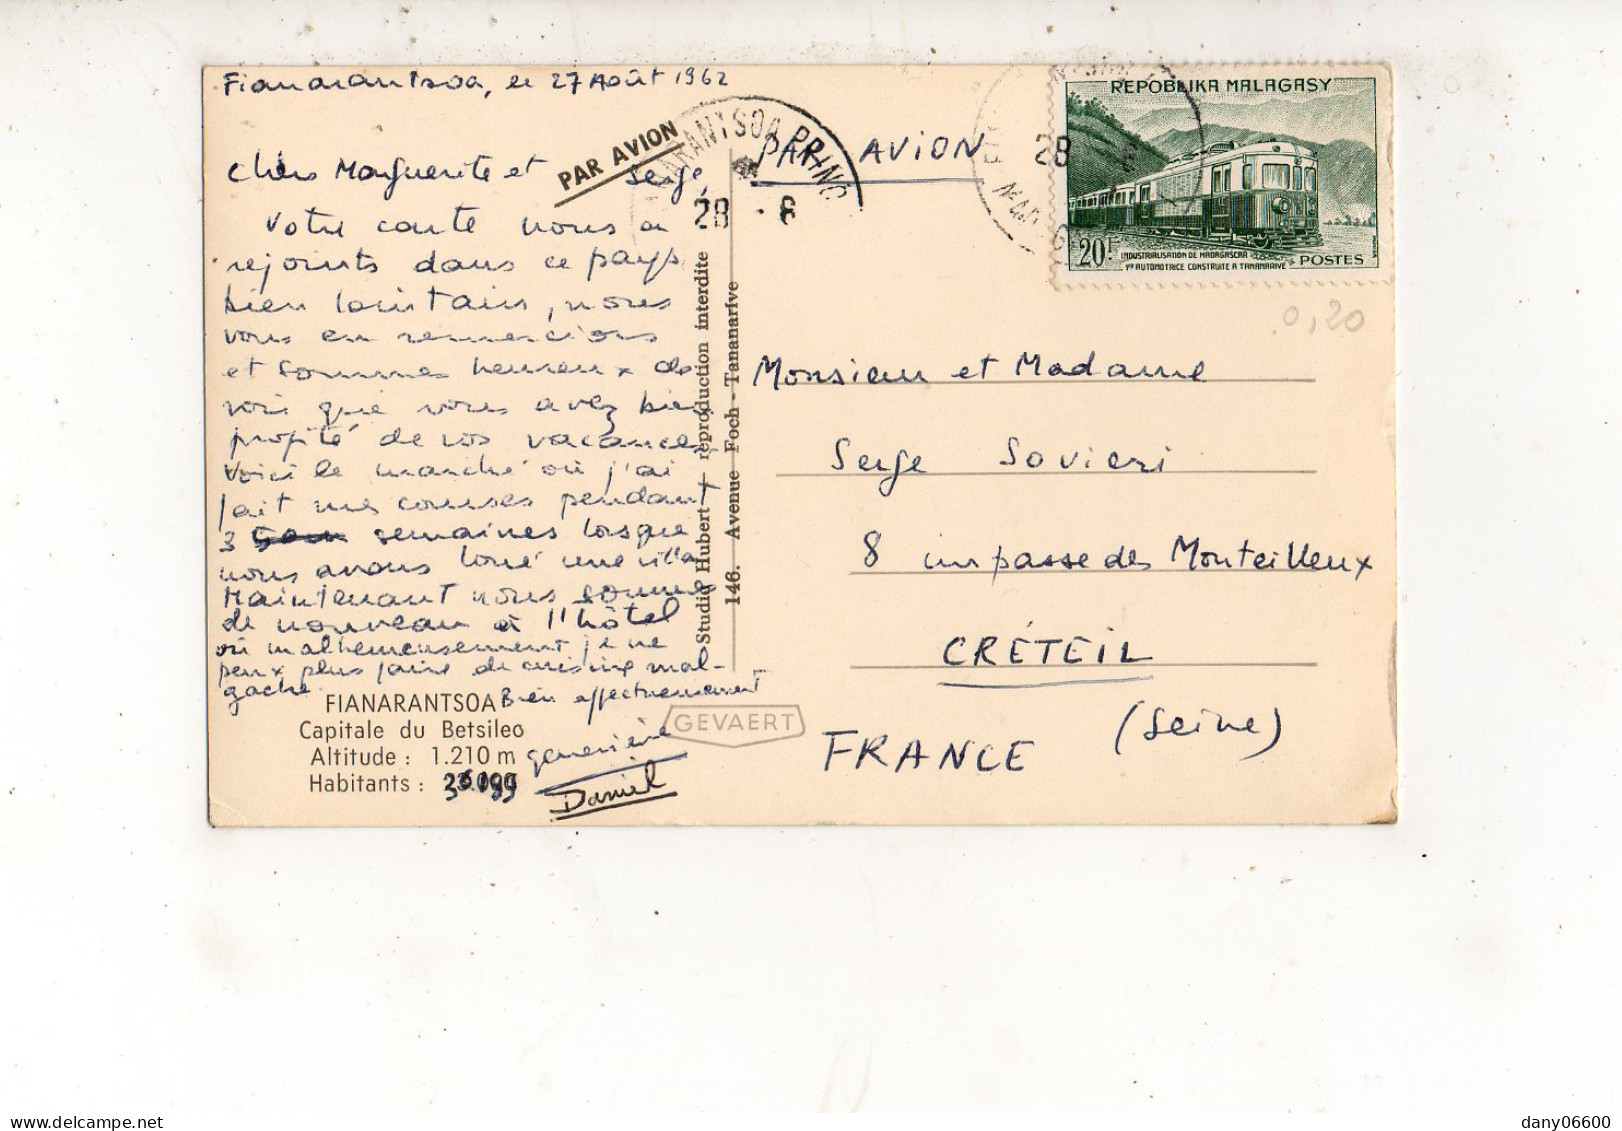 Fianarantsoa, le 27 Août 1962
PAR AVION
Chers Marguerite et Serge,
Votre carte nous a
rejoints dans ce pays
bien lointain, nous
vous en remercions
et sommes heureux de
voir que vous avez bien
profité de vos vacances
Voici le marché où j'ai
fait mes courses pendant
3 semaines lorsque
nous avons loué une villa
Maintenant nous sommes
de nouveau à l'hôtel
où malheureusement je ne
peux plus faire de cuisine mal-
gache.
Bien affectueusement
geneviève
Daniel
FIANARANTSOA
Capitale du Betsileo
Altitude : 1.210 m
Habitants :
Studio Hubert - reproduction interdite
146. Avenue Foch - Tananarive
GEVAERT
ARANTSOA PRINC
28 - 8
PAR AVION
28
REPOBLIKA MALAGASY
20F
INDUSTRIALISATION DE MADAGASCAR
1re AUTOMOTRICE CONSTRUITE A TANANARIVE
POSTES
0,20
Monsieur et Madame
Serge Sovieri
8 impasse des Monteilleux
CRÉTEIL
(Seine)
FRANCE
dany06600